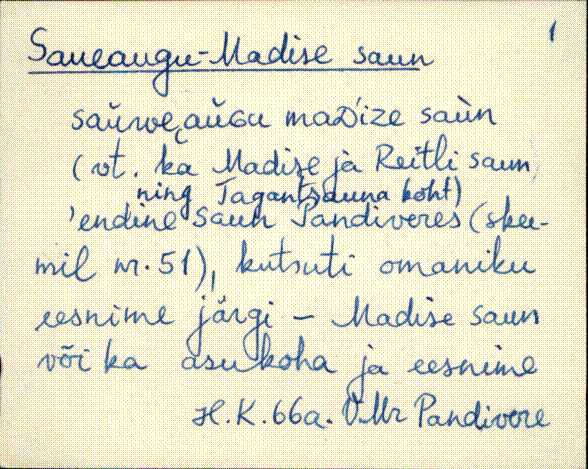 1
Saueaugu-Madise saun
saŭwe͔aŭGu maD'ize saùn
(vt. ka Madise ja Reitli saun
ning Tagantsauna koht)
'endine saun Pandiveres (skee-
mil nr. 51), kutsuti omaniku
eesnime järgi – Madise saun
või ka asukoha ja eesnime
H.K. 66a. V.Mr Pandivere